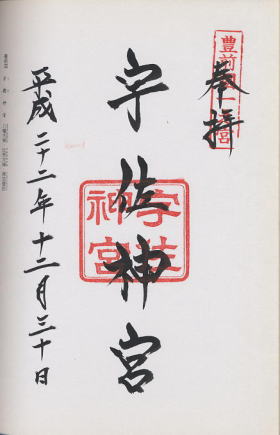 豊前國一之宮
奉拝
宇佐神宮
宇佐
神宮
平成二十二年十二月三十日